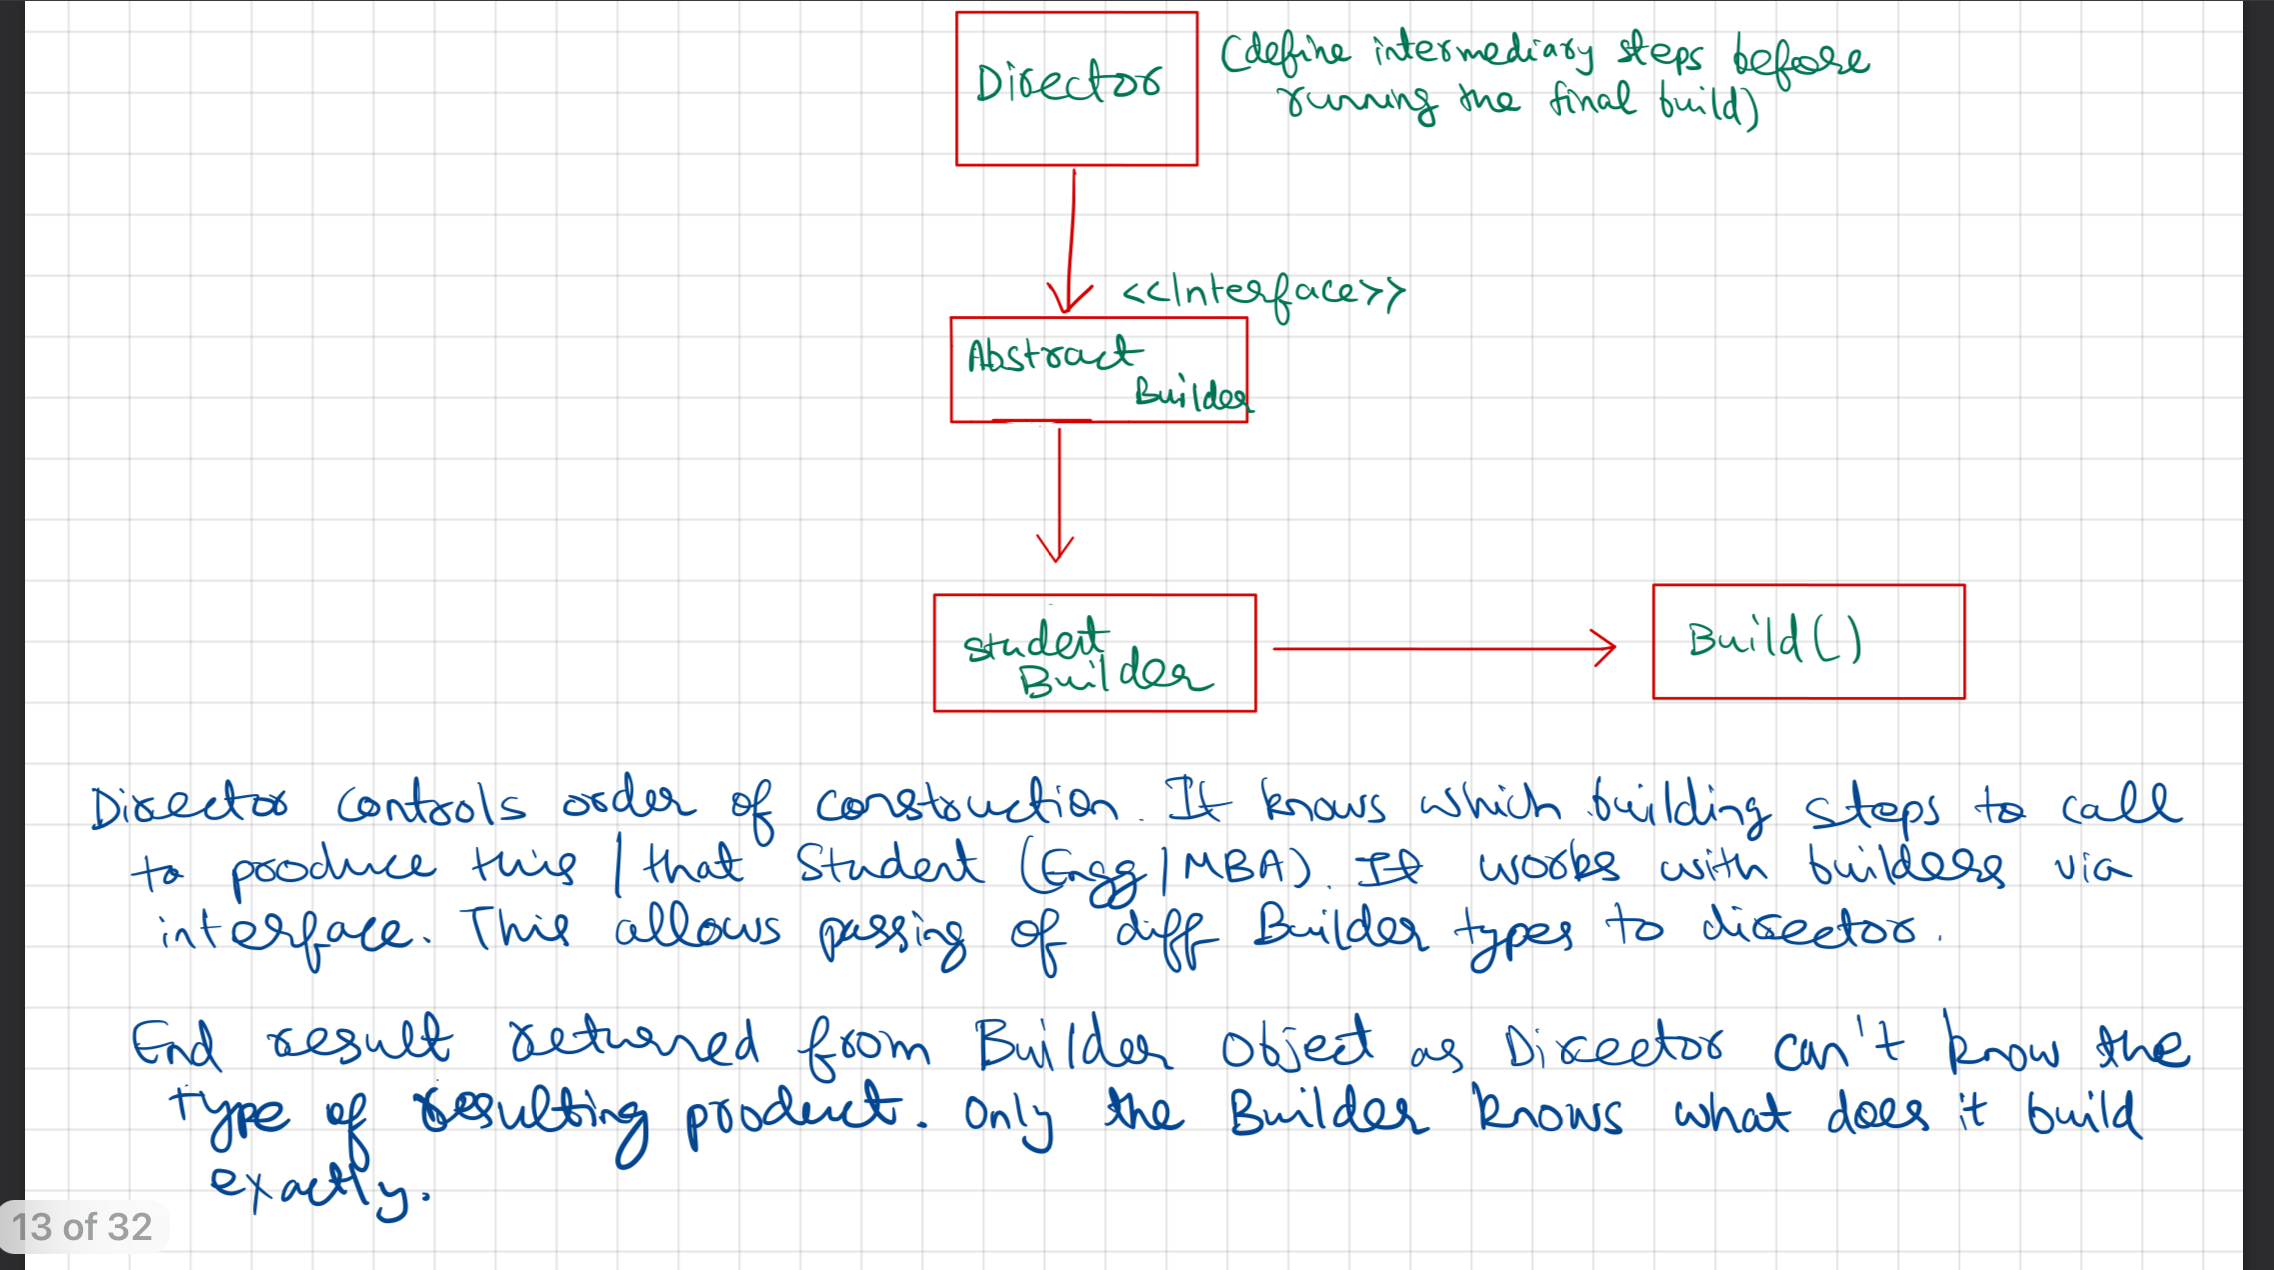 Director
(define intermediary steps before
running the final build)
<<Interface>>
Abstract
Builder
Student
Builder
Build()
Director controls order of construction. It knows which building steps to call
to produce this / that Student (Engg/MBA). It works with builders via
interface. This allows passing of diff Builder types to director.
End result returned from Builder object as Director can't know the
type of resulting product. Only the Builder knows what does it build
exactly.
13 of 32